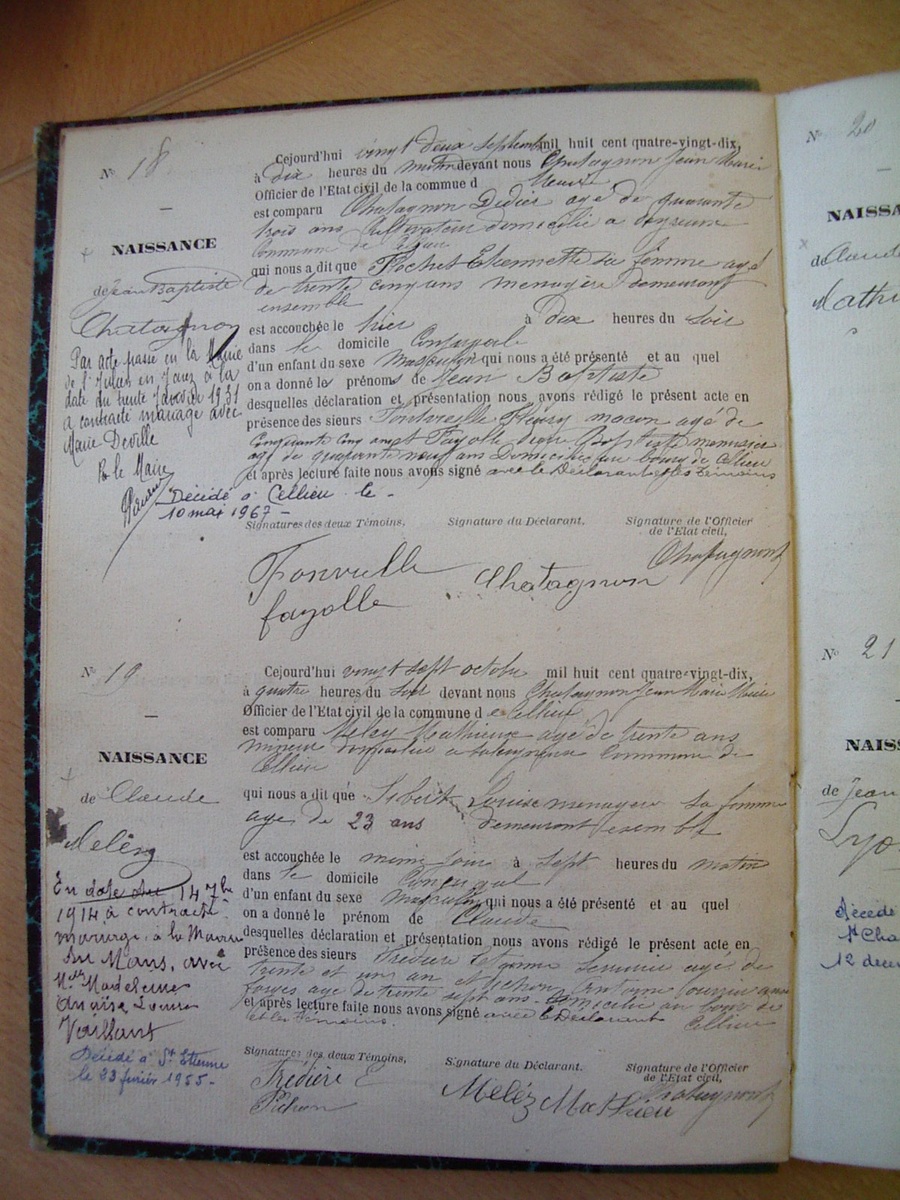 Nº 18
NAISSANCE
de Jean Baptiste
Chatagnon
Par acte passé en la Mairie
de St Julien en Jarez à la
date du trente 1931
a contracté mariage avec
Marie Deville
P. le Maire
Décédé à Cellieu le -
10 mai 1967 -
Cejourd'hui vingt deux septembre mil huit cent quatre-vingt-dix,
à dix heures du matin devant nous Chatagnon Jean Marie
Officier de l'Etat civil de la commune d
est comparu Chatagnon Didier agé de quarante
trois ans cultivateur domicilié a
commune de Cellieu
qui nous a dit que Pochet Etiennette sa femme agé
de trente cinq ans menagère demeurant
ensemble
est accouchée le hier à dix heures du soir
dans le domicile Conjugal
d'un enfant du sexe Masculin qui nous a été présenté et au quel
on a donné les prénoms de Jean Baptiste
desquelles déclaration et présentation nous avons rédigé le présent acte en
présence des sieurs Fonvieille macon agé de
Cinquante cinq ans et Fayolle Jean Baptiste menuisier
agé de quarante neuf ans Domiciliés au bourg de Cellieu
et après lecture faite nous avons signé avec le Déclarant et les témoins
Signatures des deux Témoins, Signature du Déclarant. Signature de l'Officier
de l'Etat civil,
Fonvielle Chatagnon Chatagnon
fayolle
Nº 19
NAISSANCE
de Claude
Meley
En date du 14 7bre
1914 a contracté
mariage à la Mairie
du Mans, avec
Melle Madeleine
Anaïse Louise
Vaillant
Décédé à St Etienne
le 23 février 1955 -
Cejourd'hui vingt sept octobre mil huit cent quatre-vingt-dix,
à quatre heures du soir devant nous Chatagnon Jean Marie Maire
Officier de l'Etat civil de la commune de Cellieu
est comparu Meley Mathieu agé de trente ans
mineur domicilié a commune de
Cellieu
qui nous a dit que Louise menagère sa femme
age de 23 ans demeurant esemble
est accouchée le meme jour à sept heures du matin
dans le domicile Conjugal
d'un enfant du sexe Masculin qui nous a été présenté et au quel
on a donné le prénom de Claude
desquelles déclaration et présentation nous avons rédigé le présent acte en
présence des sieurs Frédière agé de
trente et un an et Pichon Antoine
forges age de trente sept ans - Domicilié au bourg de
et après lecture faite nous avons signé avec le Déclarant Cellieu
et les témoins.
Signatures des deux Témoins, Signature du Déclarant. Signature de l'Officier
de l'Etat civil,
Frédière E Meley Mathieu Chatagnon
Pichon
Nº 20
NAISSA
de Claude
Mathi
Nº 21
NAISS
de Jean
Lyo
Décédé
St Cha
12 déce